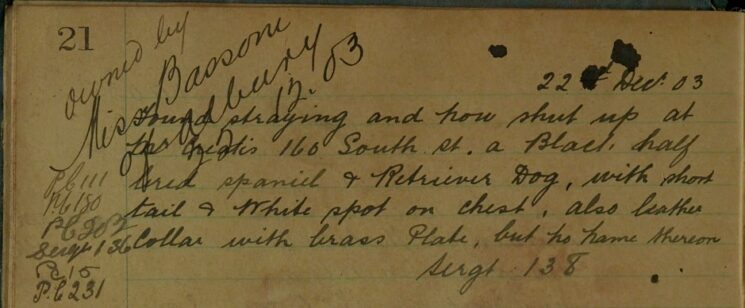 21
owned by
Miss Bassom
22 Decr 03
Found straying and now shut up at
160 South St. a Black half
bred spaniel & Retriever Dog, with short
tail & White spot on chest, also leather
Collar with brass Plate, but no name thereon
Sergt 138
P.C 111
P.C 180
P.C 202
Sergt 136
P.C 231